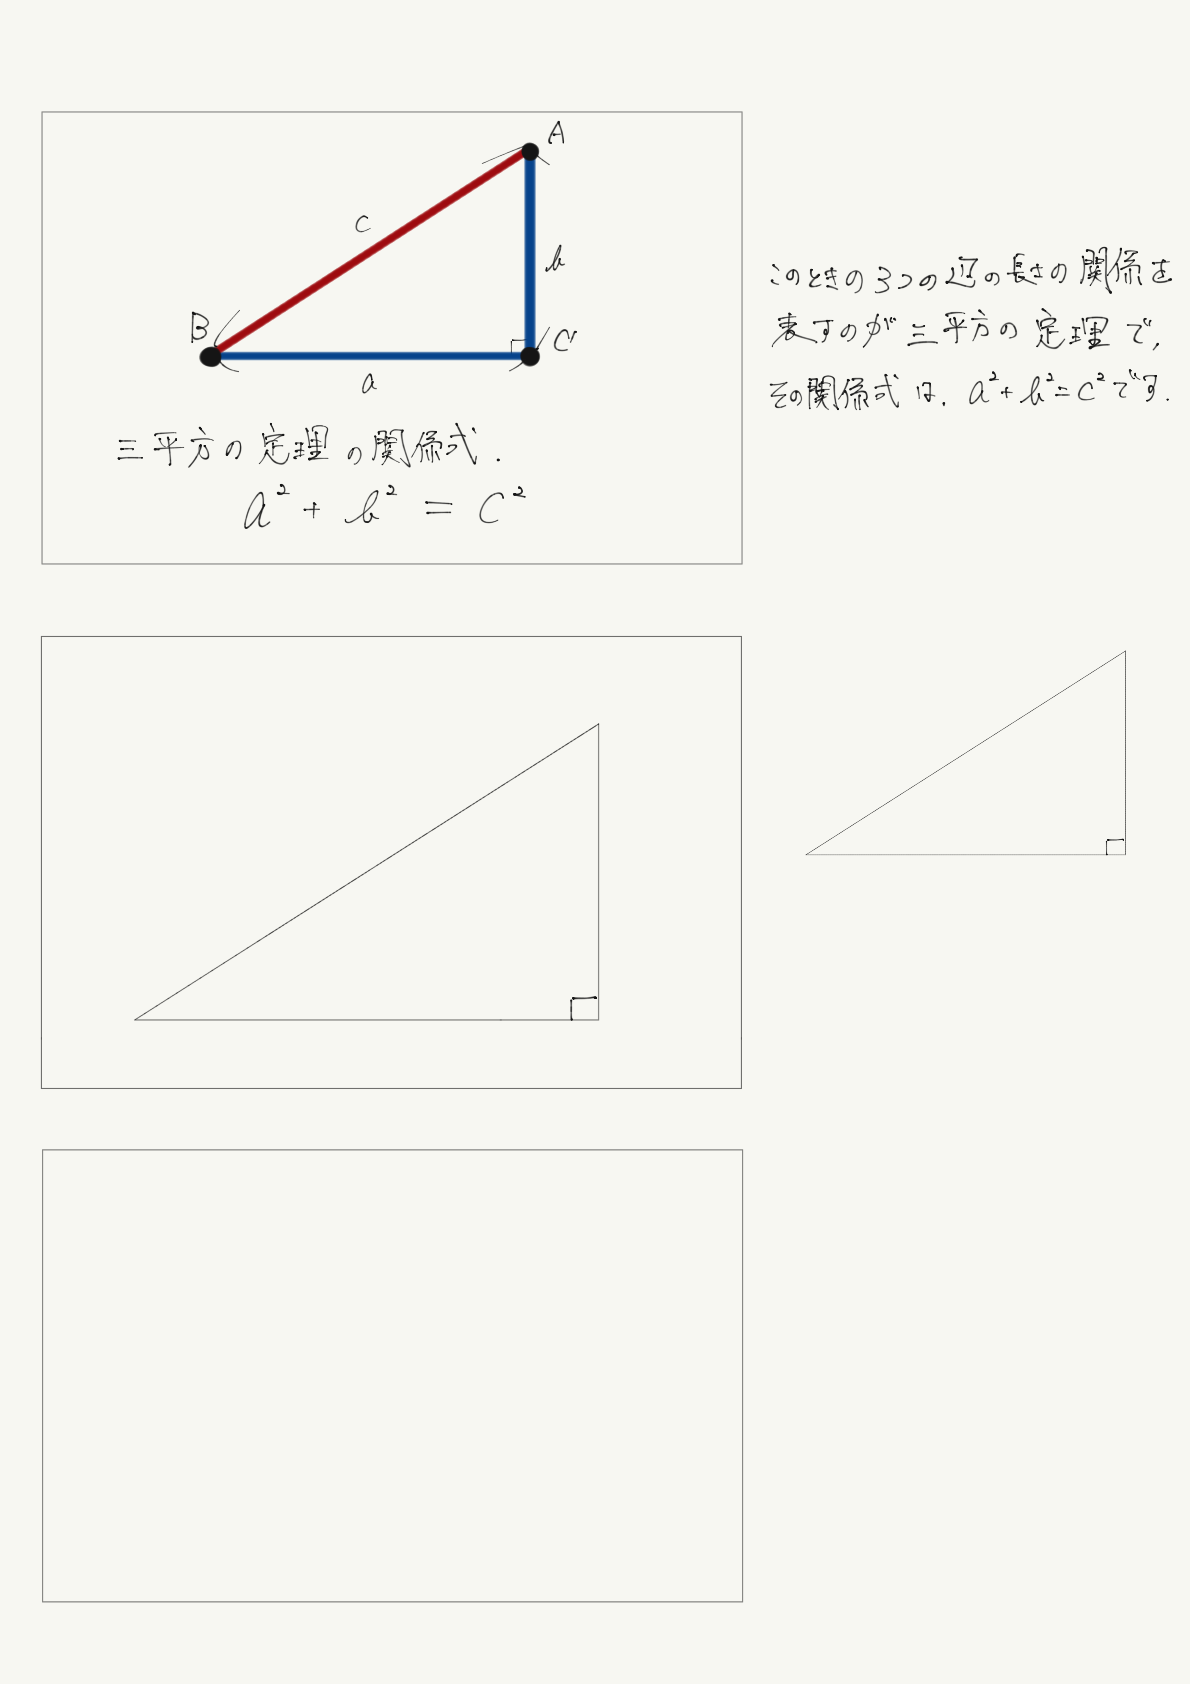 A
c
b
B
C
a
三平方の定理の関係式.
a² + b² = c²
このときの3つの辺の長さの関係を
表すのが三平方の定理で,
その関係式は, a²+b²=c²です.